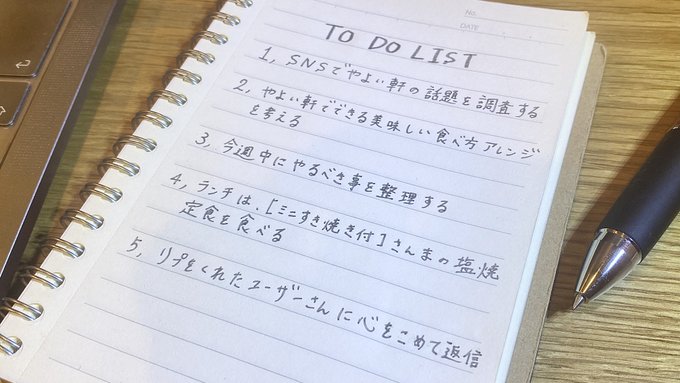 No.
DATE
TO DO LIST
1, SNSでやよい軒の話題を調査する
2, やよい軒でできる美味しい食べ方アレンジ
を考える
3, 今週中にやるべき事を整理する
4, ランチは、[ミニすき焼き付]さんまの塩焼
定食を食べる
5, リプをくれたユーザーさんに心をこめて返信